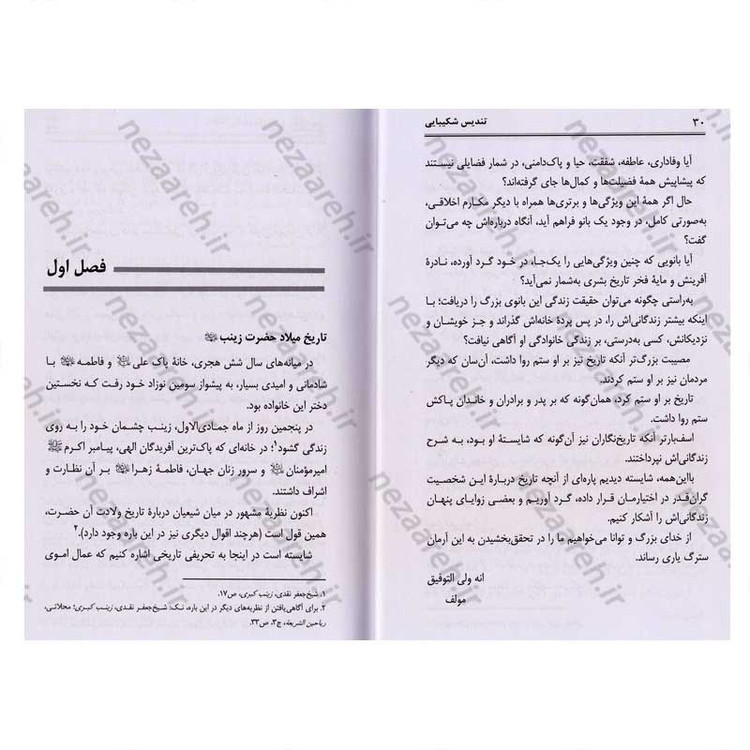 ۳۰
تندیس شکیبایی
آیا وفاداری، عاطفه، شفقت، حیا و پاک‌دامنی، در شمار فضایلی نیستند
که پیشاپیش همهٔ فضیلت‌ها و کمال‌ها جای گرفته‌اند؟
حال اگر همهٔ این ویژگی‌ها و برتری‌ها همراه با دیگر مکارم اخلاقی،
به‌صورتی کامل، در وجود یک بانو فراهم آید، آنگاه درباره‌اش چه می‌توان
گفت؟
آیا بانویی که چنین ویژگی‌هایی را یک‌جا، در خود گرد آورده، نادرهٔ
آفرینش و مایهٔ فخر تاریخ بشری به‌شمار نمی‌آید؟
به‌راستی چگونه می‌توان حقیقت زندگی این بانوی بزرگ را دریافت؛ با
اینکه بیشتر زندگانی‌اش را، در پس پردهٔ خانه‌اش گذراند و جز خویشان و
نزدیکانش، کسی به‌درستی، بر زندگی خانوادگی او آگاهی نیافت؟
مصیبت بزرگ‌تر آنکه تاریخ نیز بر او ستم روا داشت، آن‌سان که دیگر
مردمان نیز بر او ستم کردند.
تاریخ بر او ستم کرد، همان‌گونه که بر پدر و برادران و خاندان پاکش
ستم روا داشت.
اسف‌بارتر آنکه تاریخ‌نگاران نیز آن‌گونه که شایستهٔ او بود، به شرح
زندگانی‌اش نپرداختند.
بااین‌همه، شایسته دیدیم پاره‌ای از آنچه تاریخ دربارهٔ این شخصیت
گران‌قدر در اختیارمان قرار داده، گرد آوریم و بعضی زوایای پنهان
زندگانی‌اش را آشکار کنیم.
از خدای بزرگ و توانا می‌خواهیم ما را در تحقق‌بخشیدن به این آرمان
سترگ یاری رساند.
انه ولی التوفیق
مولف
فصل اول
تاریخ میلاد حضرت زینب
در میانه‌های سال شش هجری، خانهٔ پاک علی و فاطمه با
شادمانی و امیدی بسیار، به پیشواز سومین نوزاد خود رفت که نخستین
دختر این خانواده بود.
در پنجمین روز از ماه جمادی‌الاول، زینب چشمان خود را به روی
زندگی گشود۱؛ در خانه‌ای که پاک‌ترین آفریدگان الهی، پیامبر اکرم
امیرمؤمنان و سرور زنان جهان، فاطمهٔ زهرا بر آن نظارت و
اشراف داشتند.
اکنون نظریهٔ مشهور در میان شیعیان دربارهٔ تاریخ ولادت آن حضرت،
همین قول است (هرچند اقوال دیگری نیز در این باره وجود دارد).۲
شایسته است در اینجا به تحریفی تاریخی اشاره کنیم که عمال اموی
۱. شیخ‌جعفر نقدی، زینب کبری، ص۱۷.
۲. برای آگاهی‌یافتن از نظریه‌های دیگر در این باره، نک: شیخ‌جعفر نقدی، زینب کبری؛ محلاتی،
ریاحین الشریعه، ج۳، ص۳۳.
nezaareh.ir